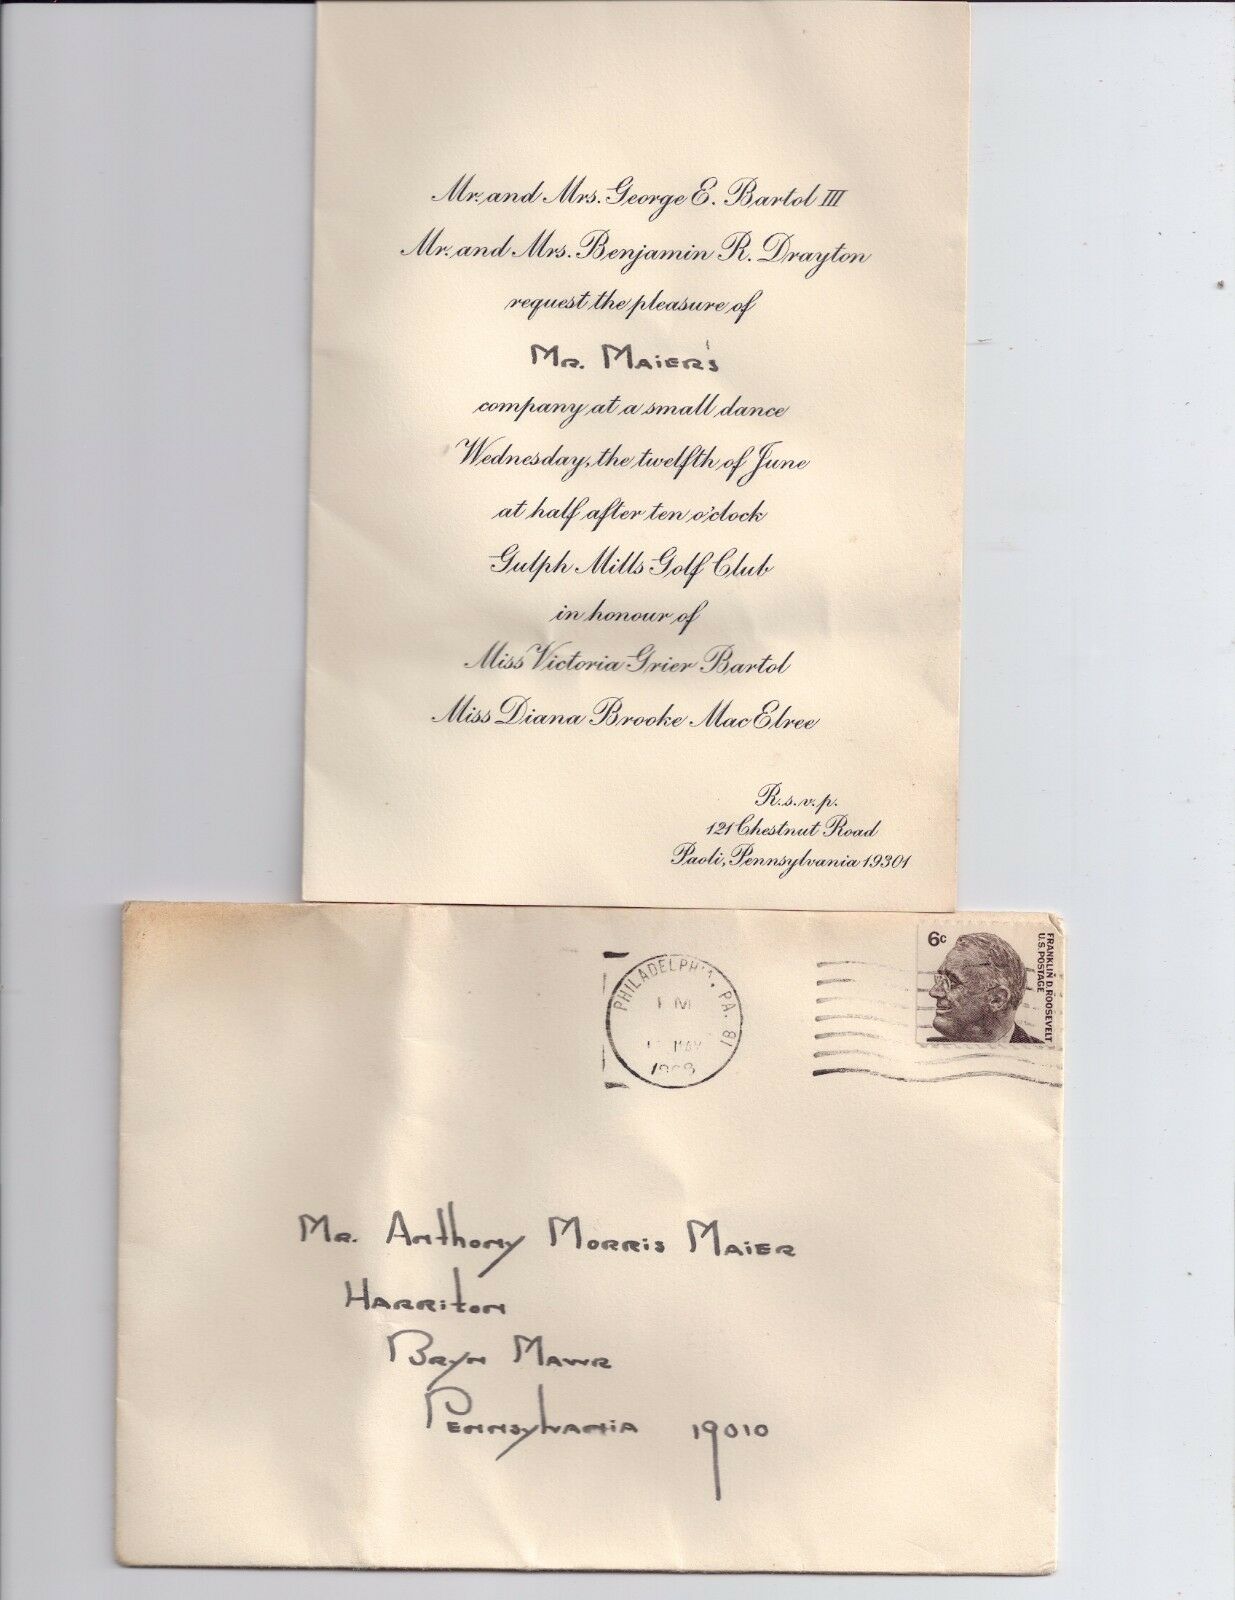 Mr. and Mrs. George E. Bartol III
Mr. and Mrs. Benjamin R. Drayton
request the pleasure of
Mr. Maier's
company at a small dance
Wednesday, the twelfth of June
at half after ten o'clock
Gulph Mills Golf Club
in honour of
Miss Victoria Grier Bartol
Miss Diana Brooke MacElree
R.s.v.p.
121 Chestnut Road
Paoli, Pennsylvania 19301
PHILADELPHIA, PA. 81
PM
MAY
1968
6c
FRANKLIN D. ROOSEVELT
U.S. POSTAGE
Mr. Anthony Morris Maier
Harriton
Bryn Mawr
Pennsylvania 19010